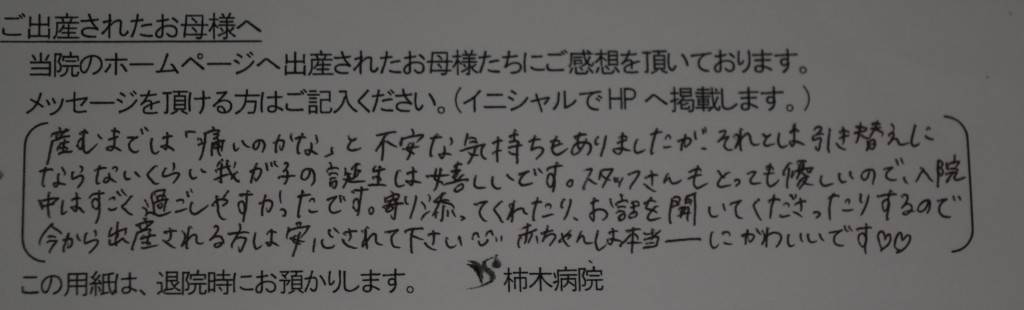 ご出産されたお母様へ
当院のホームページへ出産されたお母様たちにご感想を頂いております。
メッセージを頂ける方はご記入ください。(イニシャルでHPへ掲載します。)
産むまでは「痛いのかな」と不安な気持ちもありましたが、それとは引き替えに
ならないくらい我が子の誕生は嬉しいです。スタッフさんもとっても優しいので、入院
中はすごく過ごしやすかったです。寄り添ってくれたり、お話を聞いてくださったりするので
今から出産される方は安心されて下さい 赤ちゃんは本当ーにかわいいです♡♡
この用紙は、退院時にお預かりします。 柿木病院